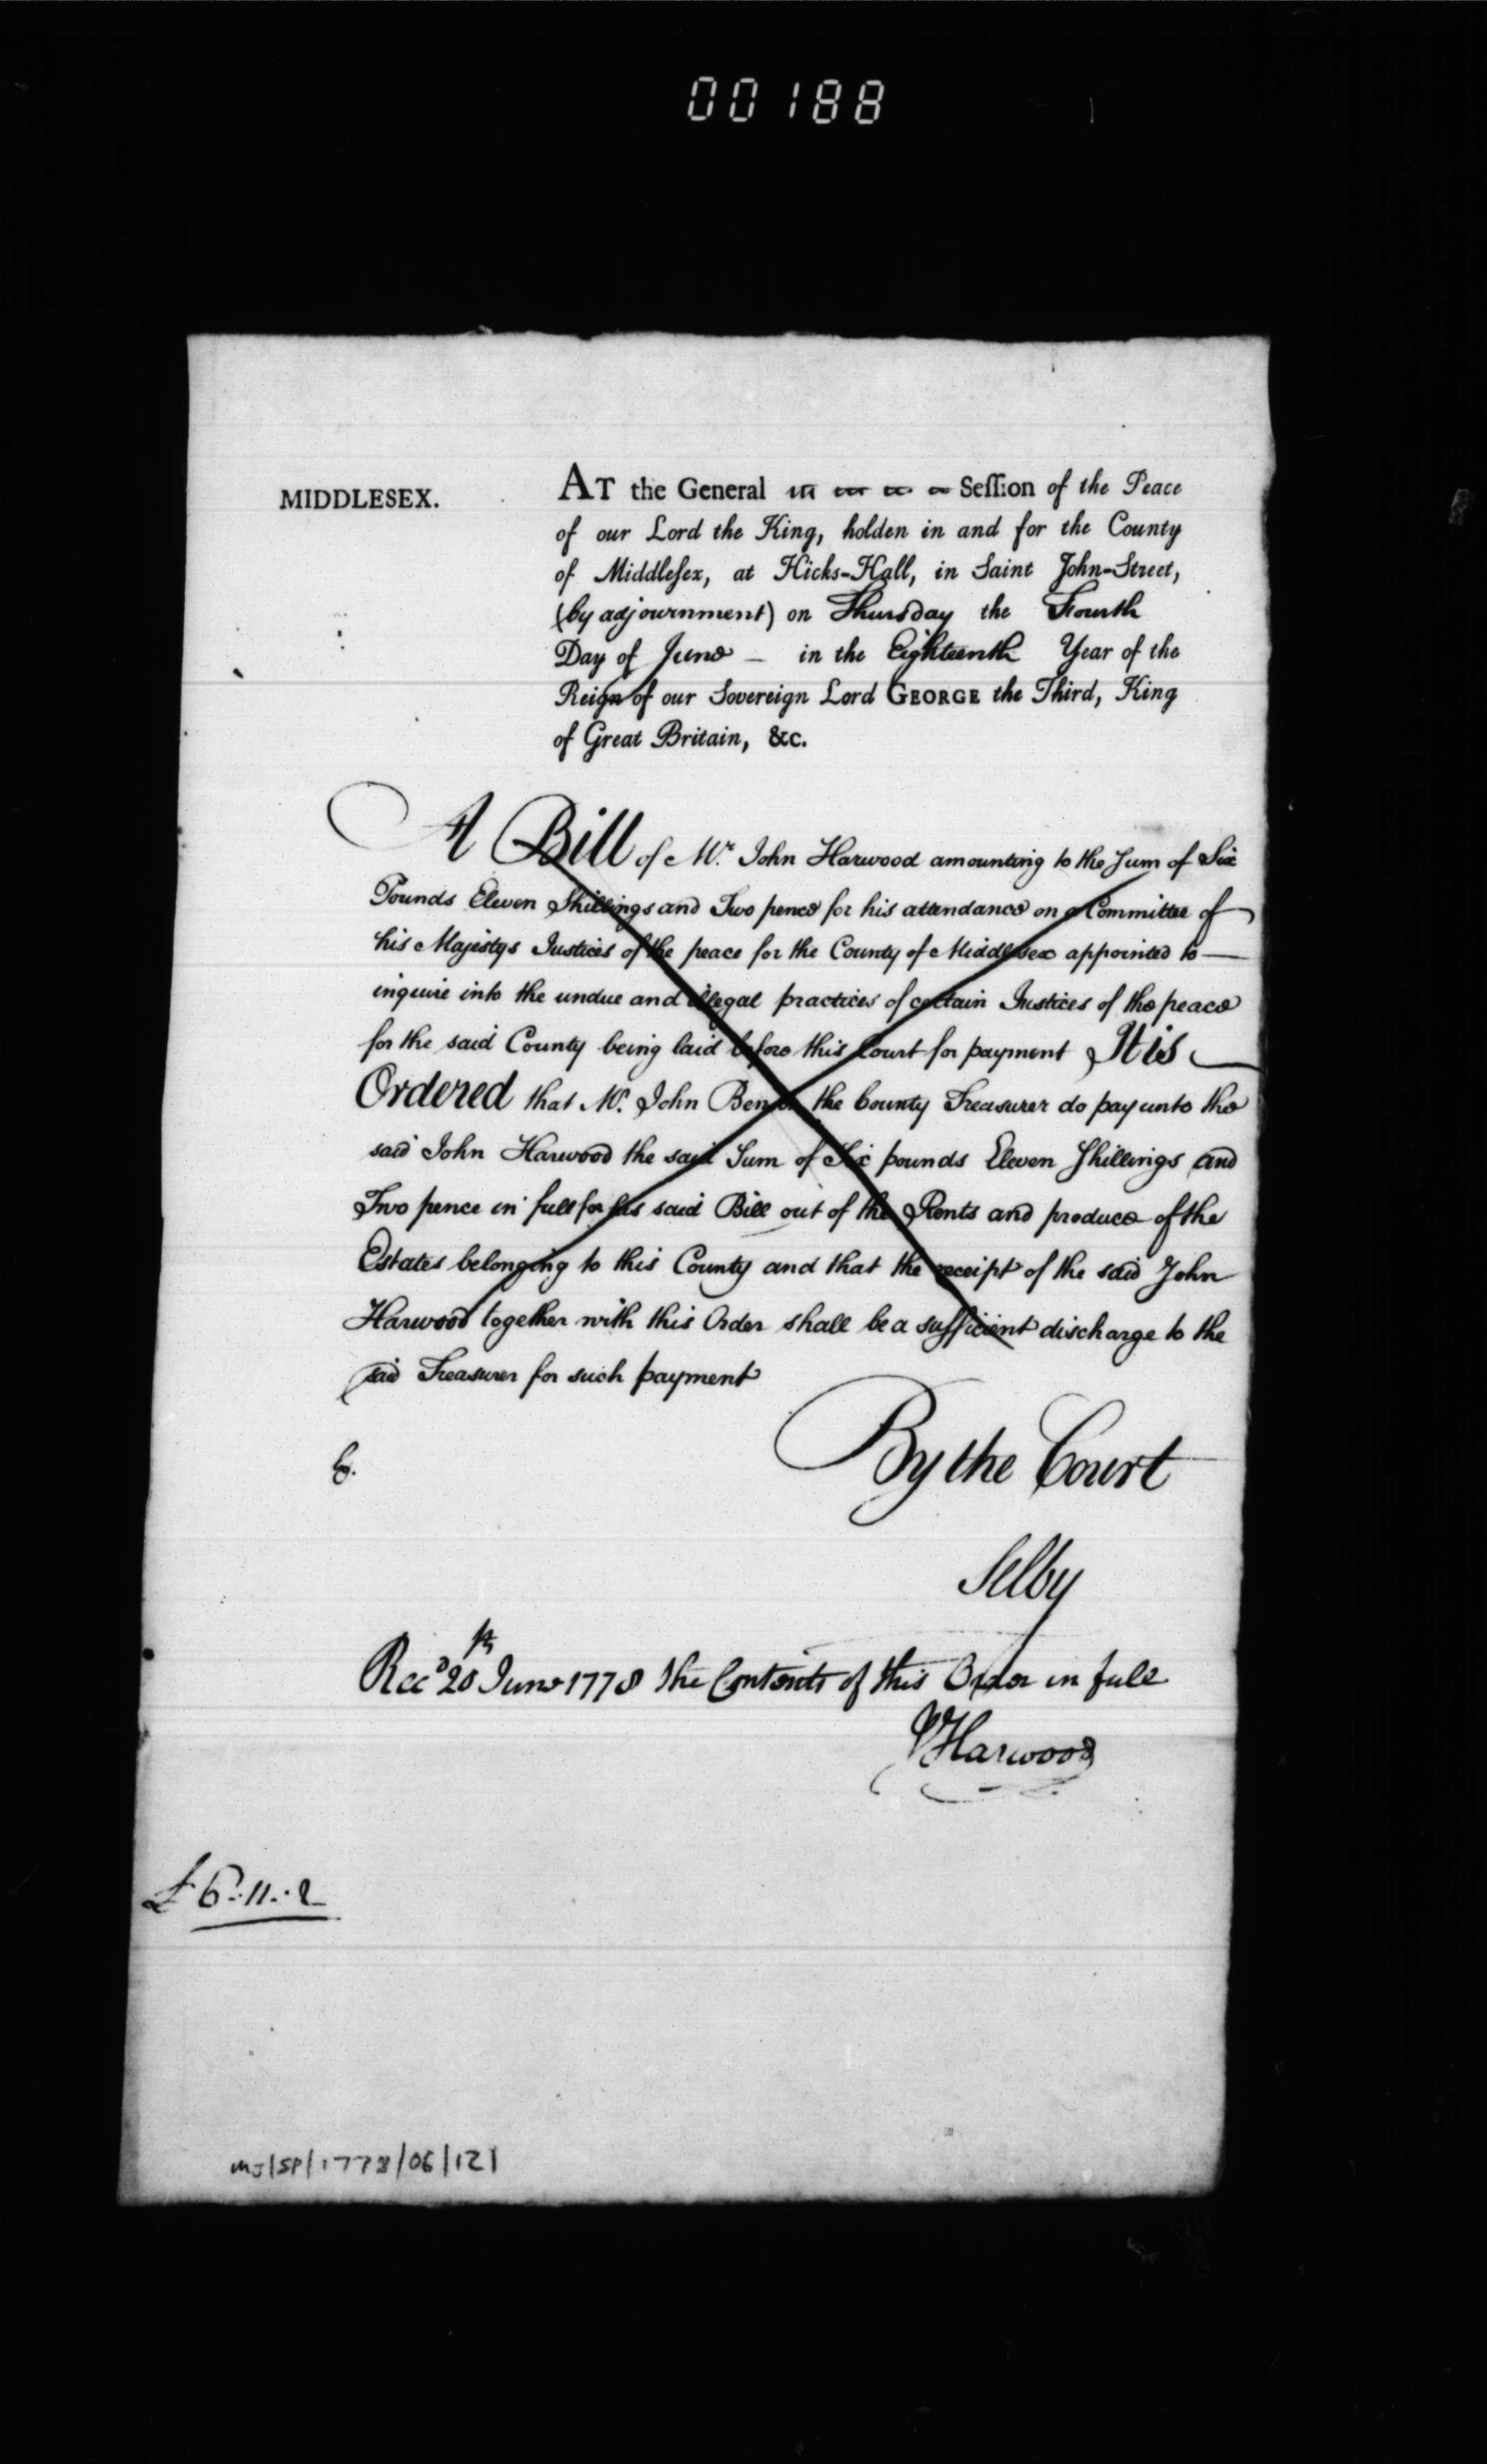 00188
MIDDLESEX.
AT the General Session of the Peace
of our Lord the King, holden in and for the County
of Middlesex, at Hicks-Hall, in Saint John-Street,
(by adjournment) on Thursday the Fourth
Day of June — in the Eighteenth Year of the
Reign of our Sovereign Lord GEORGE the Third, King
of Great Britain, &c.
A Bill of Mr. John Harwood amounting to the Sum of Six
Pounds Eleven Shillings and Two pence for his attendance on a Committee of
his Majestys Justices of the peace for the County of Middlesex appointed to —
inquire into the undue and illegal practices of certain Justices of the peace
for the said County being laid before this Court for payment It is
Ordered that Mr. John Benson the County Treasurer do pay unto the
said John Harwood the said Sum of Six pounds Eleven Shillings and
Two pence in full for his said Bill out of the Rents and produce of the
Estates belonging to this County and that the receipt of the said John
Harwood together with this Order shall be a sufficient discharge to the
said Treasurer for such payment
By the Court
Selby
Recd 20th June 1778 the Contents of this Order in full
J Harwood
£6..11..2
MJ/SP/1778/06/121